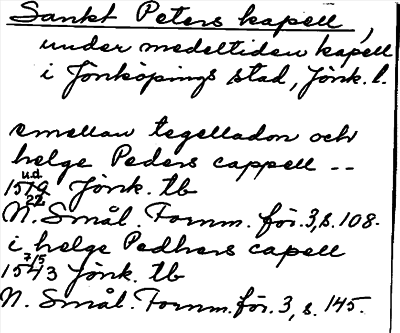 Sankt Peters kapell,
under medeltiden kapell
i Jönköpings stad, Jönk. l.
emellan tegelladon och
helge Peders cappell --
u.d.
1522 Jönk. tb
N. Smål. Fornm. för. 3, s. 108.
i helge Pedhers capell
7/5
1543 Jönk. tb
N. Smål. Fornm. för. 3, s. 145.